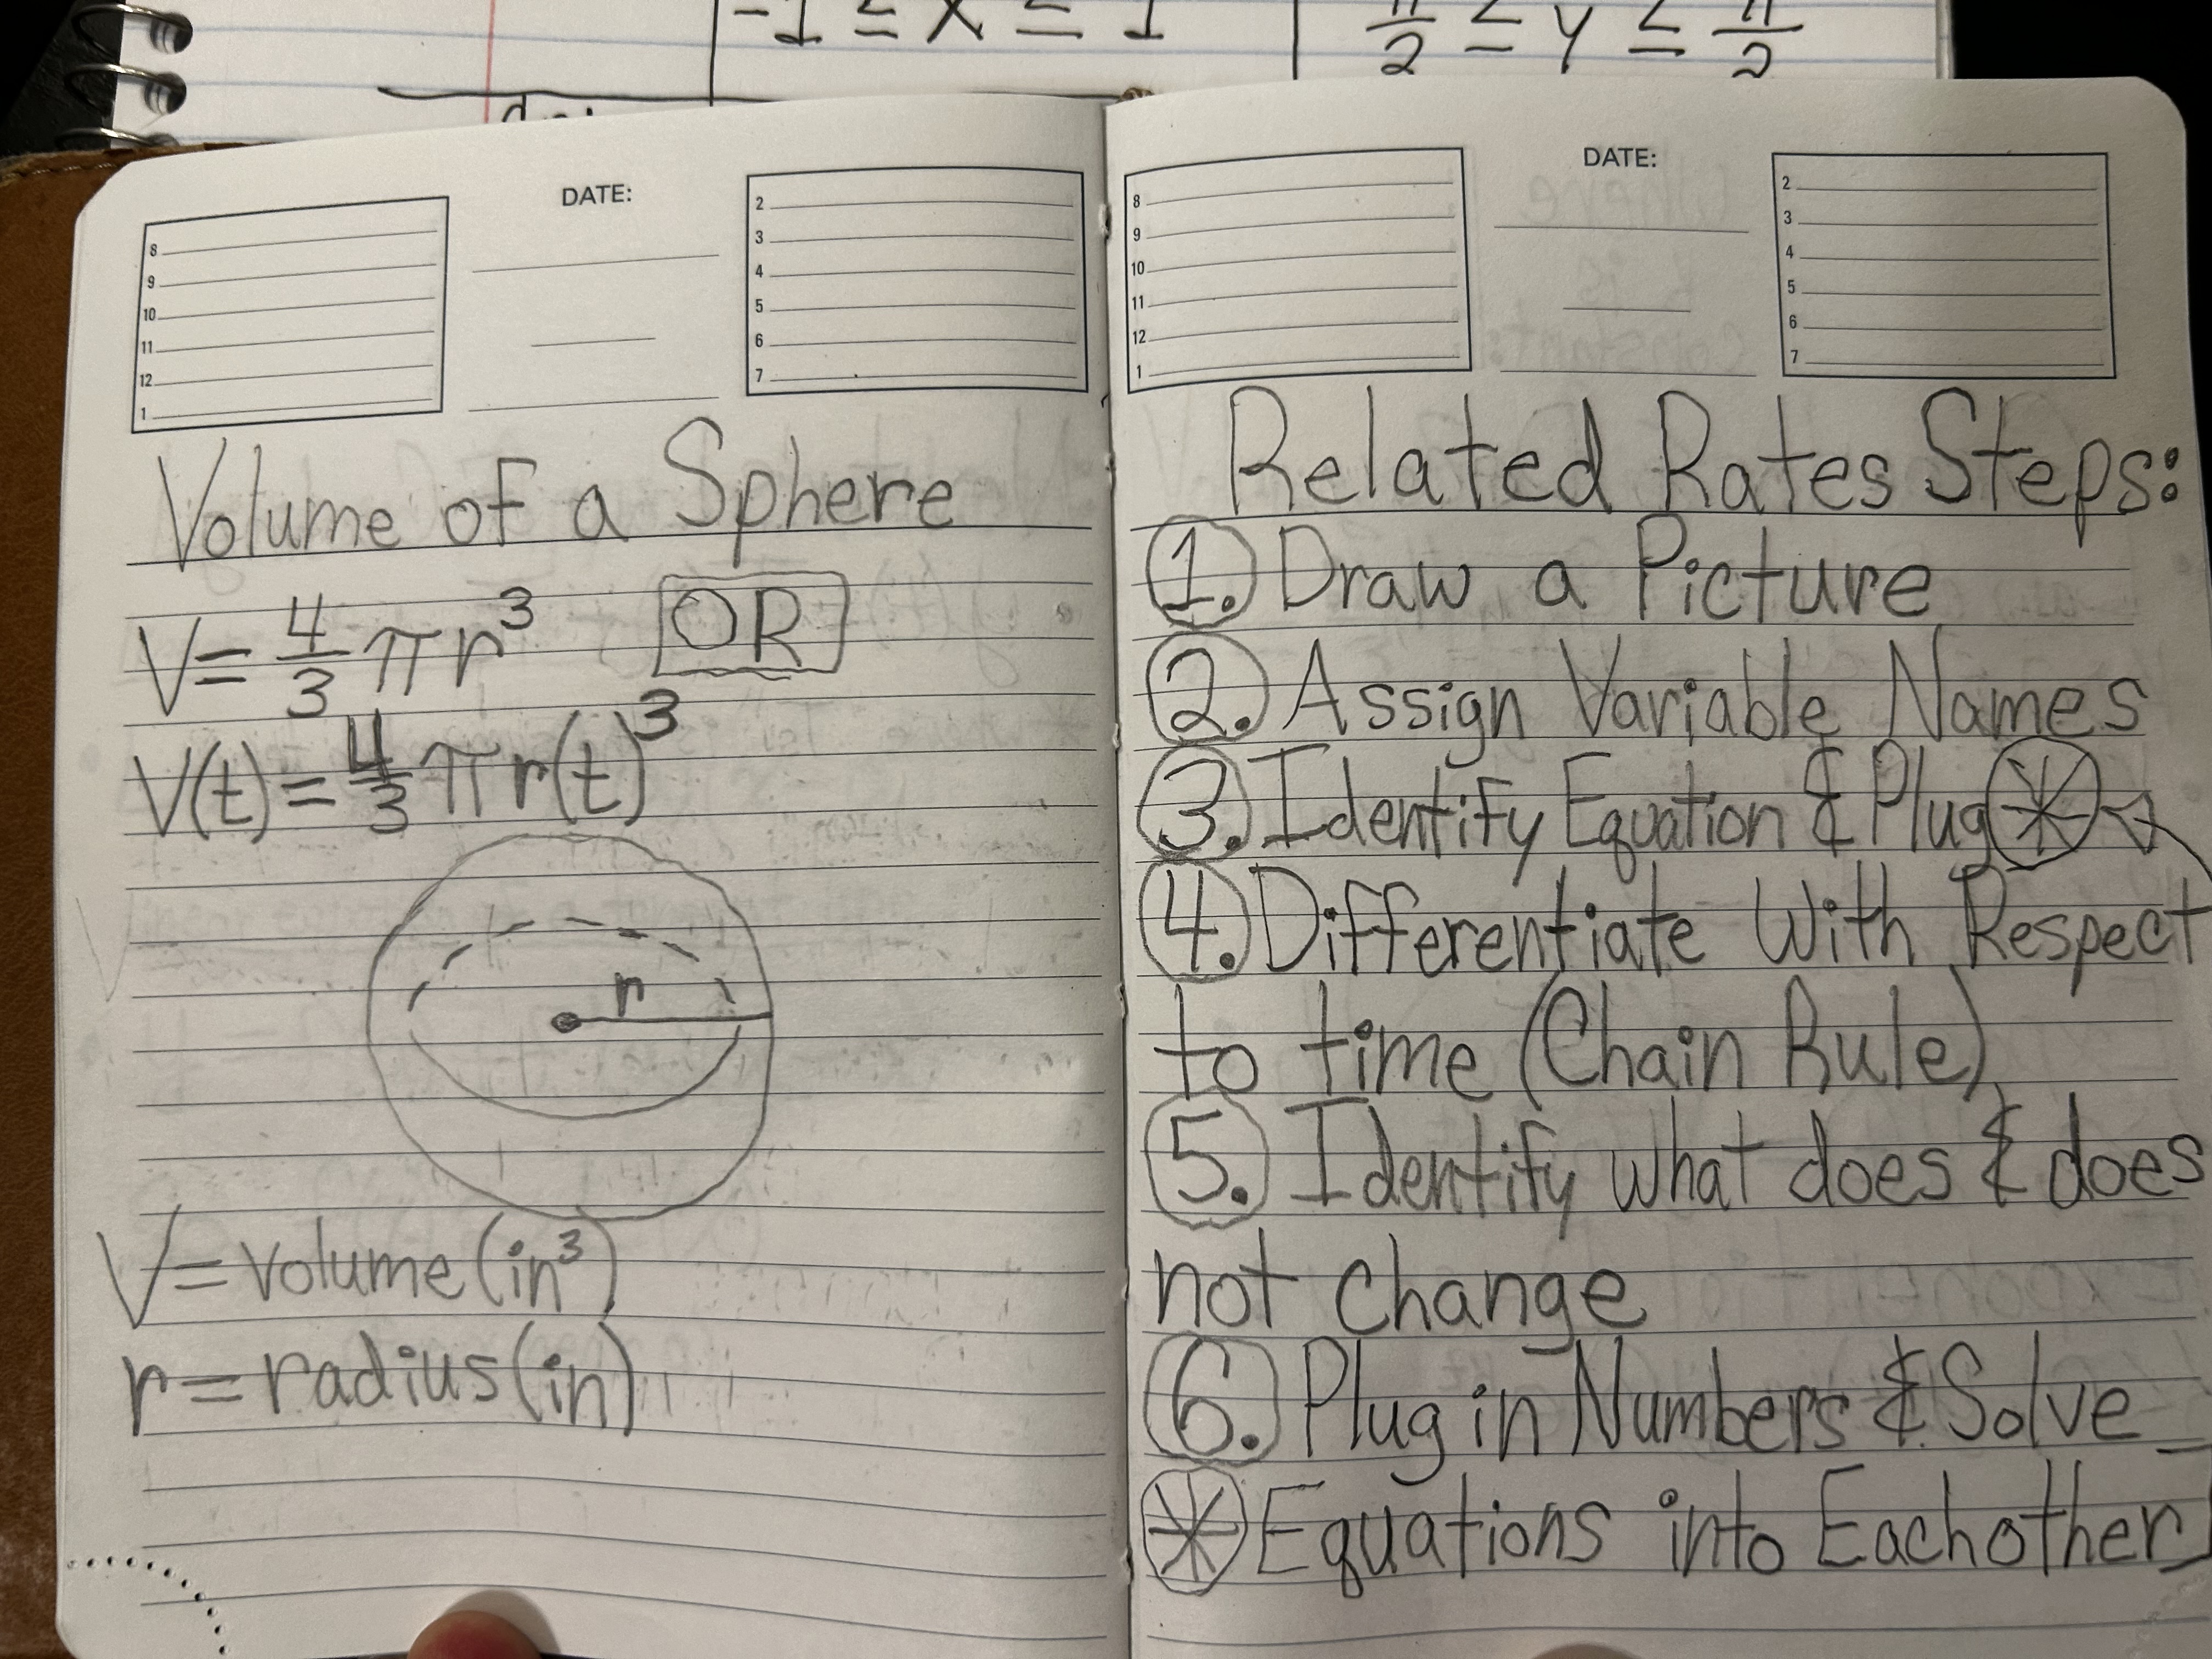 DATE:
8
9
10
11
12
1
2
3
4
5
6
7
Volume of a Sphere
V = 4/3 π r³ OR
V(t) = 4/3 π r(t)³
r
V = Volume (in³)
r = radius (in)
DATE:
8
9
10
11
12
1
2
3
4
5
6
7
Related Rates Steps:
1. Draw a Picture
2. Assign Variable Names
3. Identify Equation & Plug *
4. Differentiate With Respect
to time (Chain Rule)
5. Identify what does & does
not change
6. Plug in Numbers & Solve
* Equations into Eachother
-1 ≤ x ≤ 1
π/2 ≤ y ≤ π/2